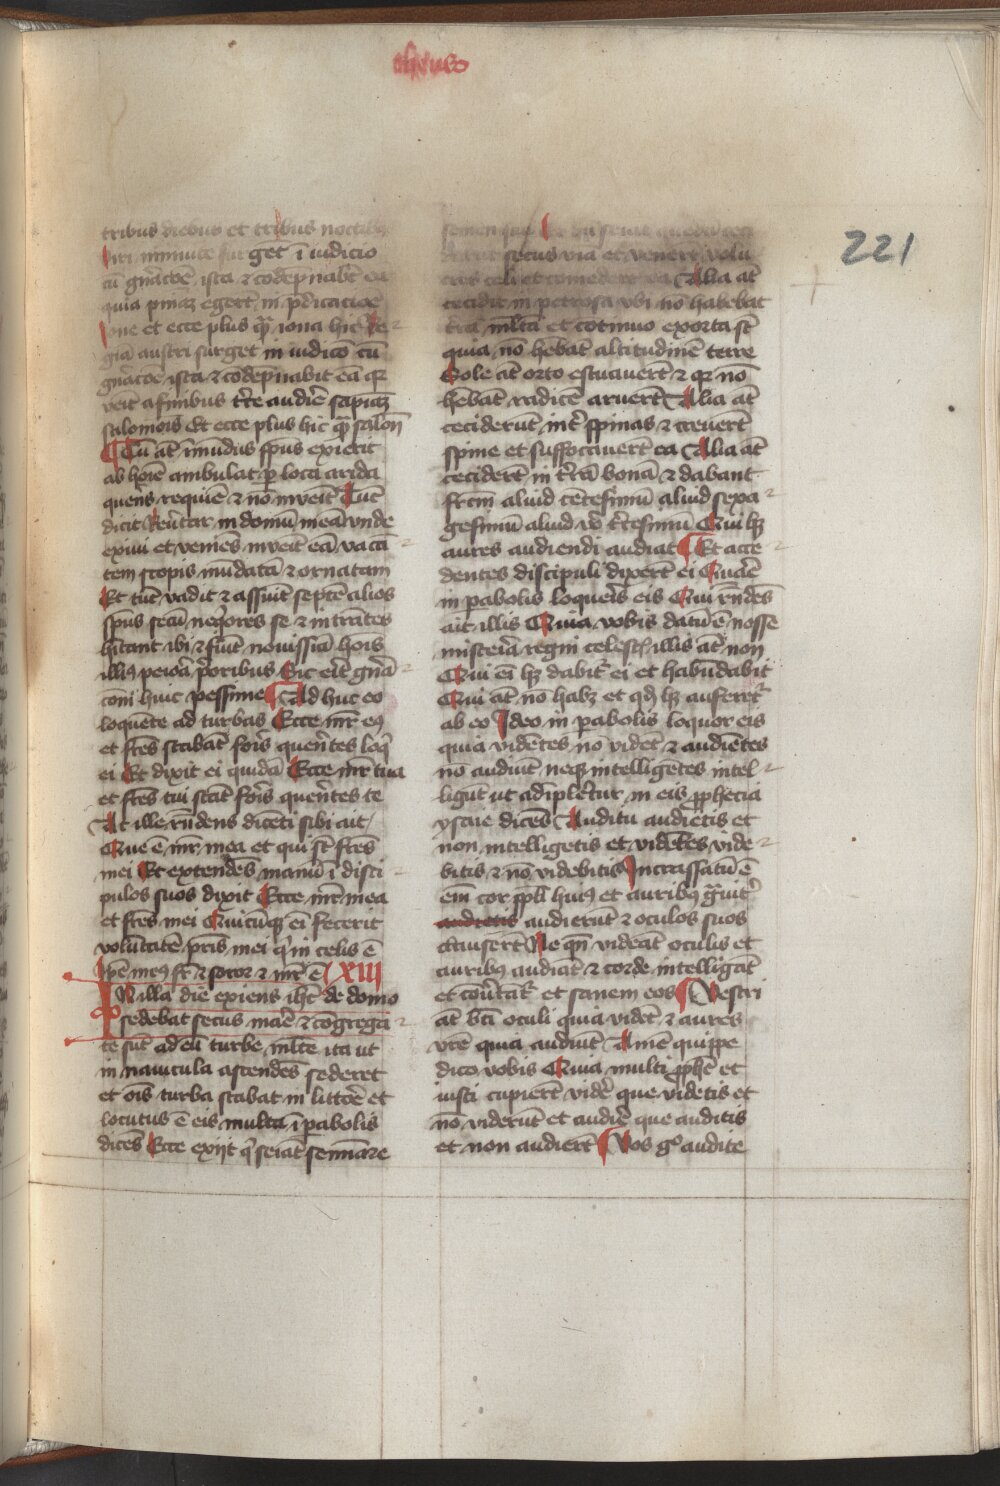 theus
221
tribus diebus et tribus noctibꝫ
Viri niniuite surget ī iudicio
cū gn̄acōe ista ⁊ codēpnabt̄ eā
quia pn̄iaꝫ egert̄ in p̄dicacioē
ione et ecce plus qͣ̄ iona hic Re
gīa austri surget in iudicō cū
gn̄acōe ista ⁊ codēpnabit eā qꝛ
veīt a finibus tr̄re audir̄e sapiaꝫ
salomoīs Et ecce plus hic qͣ̄ salon̄
Cū āt īmūdus sp̄us exierit
ab hoīe ambulat ꝑ loca arida
querēs requiē ⁊ nō inveīt Tūc
dicit Reūtar in domū meā vnde
exiui et veniēs inveīt eā vacā
tem scopis mūdatā ⁊ ornatam
Et tūc vadit ⁊ assūīt septē alios
sp̄us secū neqͦres se ⁊ intrātes
hītant ibi ⁊ sūīt nouissīa hoīs
illiꝰ peioͣa pͥoribus Sic erīt gn̄a
cōni huic pessime Ad huc eo
loquēte ad turbas Ecce mr̄ eiꝰ
et fr̄es stabāt foris querētes loqͥ
ei Et dixit ei quidā Ecce mr̄ tua
et fr̄es tui stāt foris querētes te
At ille rn̄dens dicēti sibi ait
Que ē mr̄ mea et qui sūt fr̄es
mei Et extendēs manū ī disci
pulos suos dixit Ecce mr̄ mea
et fr̄es mei Quicūqꝫ eī fecerit
volūtatē pr̄is mei qͥ in celis ē
ip̄e meꝰ fr̄ ⁊ soror ⁊ mr̄ ē XIII
IN illa die exiens ihc̄ de domo
sedebat secus mar̄e ⁊ cōgrega
te sūt ad eū turbe ml̄te ita ut
in nauicula ascendēs sederet
et oīs turba stabat in littoēe et
locutus ē eis multa ī ꝑabolis
dicēs Ecce exijt qͥ seīat semīare
semen suū Et dū seīat quedā ceci
derūt secus viā et venert̄ volu
cres celi et comedert̄ ea Alia āt
cecidit in petrosa vbi nō habebat
tr̄rā ml̄tā et cōtinuo exorta sūt
quia nō hebāt altitudinē terre
Sole āt orto estuavert̄ ⁊ qꝛ nō
hebāt radicē aruert̄ Alia āt
ceciderūt int̄ spinas ⁊ creuert̄
spine et suffocauert̄ ea Alia āt
cecidert̄ in tr̄rā bonā ⁊ dabant
frc̄m aliud cētesimū aliud sexa
gesimū aliud vͦ tr̄cesimū Qui hꝫ
aures audiendi audiat Et acce
dentes discipuli dixert̄ ei Quar̄e
in ꝑabolis loqueris eis Qui rn̄dēs
ait illis Quia vobis datū ē nosse
misteria regni celesti illis āt non
Qui eī hꝫ dabit̄ ei et habūdabit
Qui āt nō habꝫ et qd̄ hꝫ auferet̄
ab eo Ideo in ꝑabolis loquor eis
quia vidētes nō vidēt ⁊ audiētes
nō audiūt neqꝫ intelligētes intel
ligūt ut adīpleret̄ in eis ꝓphecia
ysaie dicēs Auditu audietis et
non intelligetis et vidētes vide
bitis ⁊ nō videbitis Incrassatū ē
em̄ cor ppl̄i huiꝰ et auribꝰ gͣuit̄
audietis audierūt ⁊ oculos suos
clausert̄ Ne qn̄ videāt oculis et
auribꝰ audiāt ⁊ corde intelligāt
et cōūtāt̄ et sanem eos Vestri
āt bt̄i oculi quia vidēt ⁊ aures
vr̄e quia audiūt Amē quippe
dico vobis Quia multi ꝓphe et
iusti cupiert̄ vider̄e que videtis et
nō viderūt et audir̄e que auditis
et non audiert̄ Vos gͦ audite